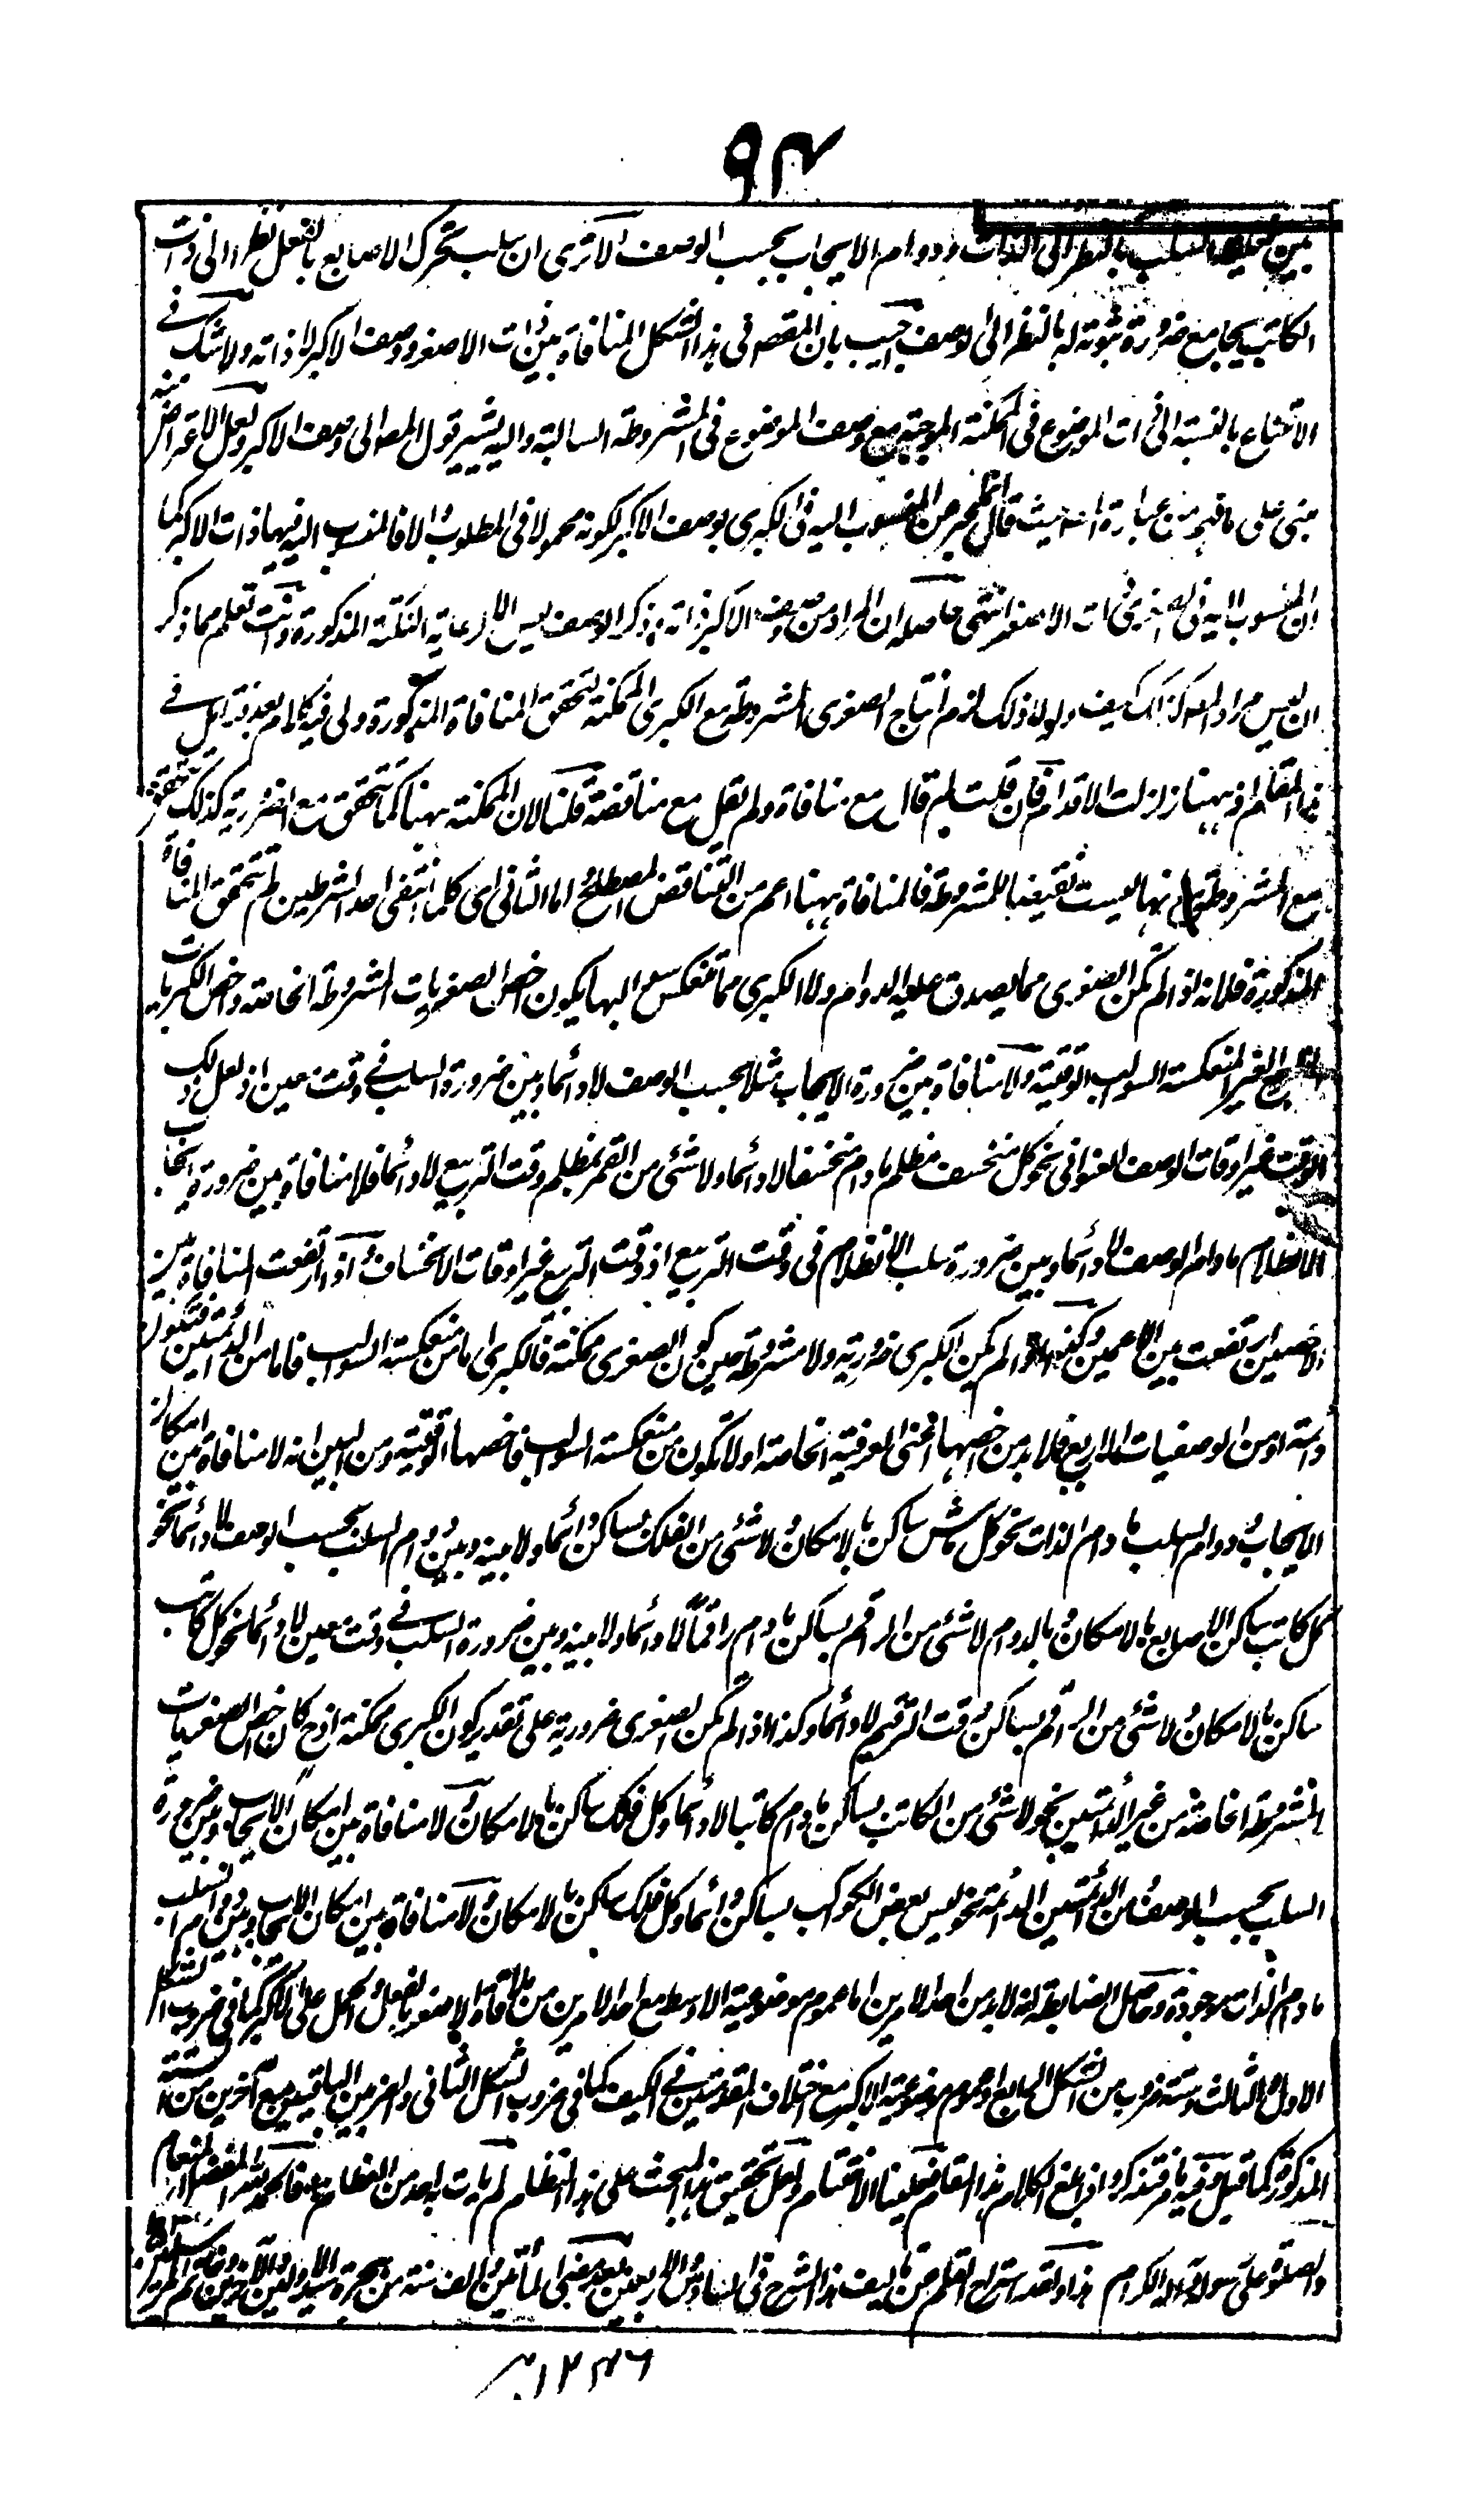 ٩٣
بين فعلية السلب بالنظر الى الذات ودوام الايجاب بحسب الوصف الا ترى ان سلب تحرك الاصابع بالفعل نظرا الى ذات
الكاتب يجامع ضرورة ثبوته له بالنظر الى الوصف اجيب بان المقصد فى هذا الشكل المنافاة بين ذات الاصغر ووصف الاكبر لا ذاته ولا شك فى
الاجتماع بالنسبة الى ذات الموضوع فى الممكنة الموجبة مع وصف الموضوع فى المشروطة السالبة واليه يشير قول المص الى وصف الاكبر ولعل الاعتراض
مبنى على ما فهم من عبارة المص حيث قال عبر عن المنسوب اليه فى الكبرى بوصف الاكبر لكونه محمولا فى المطلوب والا فالمنسوب اليه فيهما ذات الاكبر كما
ان المنسوب اليه فى الصغرى ذات الاصغر انتهى حاصله ان المراد من وصف الاكبر ذاته وذكر الوصف ليس الا لرعاية النكتة المذكورة وانت تعلم مما ذكر
ان ليس مراد المص كذلك كيف ولولا ذلك لزم انتاج الصغرى المشروطة مع الكبرى الممكنة لتحقق المنافاة المذكورة ولى فيه كلام بعد فتامل فى
هذا المقام اذ ههنا زلزلت الاقدام فان قلت لم قال مع منافاة ولم يقل مع مناقضة قلنا لان الممكنة ههنا كما تتحقق مع الضرورية كذلك تتحقق
مع المشروطة مع انها ليست نقيضا للمشروطة فالمنافاة ههنا اعم من التناقض المصطلح اما الثانى اى كلما انتفى احد الشرطين لم تتحقق المنافاة
المذكورة فلانه لو لم تكن الصغرى مما يصدق عليه الدوام ولا الكبرى مما تنعكس سوالبها يكون اخص الصغريات المشروطة الخاصة واخص الكبريات
الغير المنعكسة السوالب الوقتية ولا منافاة بين ضرورة الايجاب مثلا بحسب الوصف لا دائما وبين ضرورة السلب فى وقت معين اذ لعل ذلك
الوقت غير اوقات الوصف العنوانى نحو كل منخسف مظلم مادام منخسفا لا دائما ولا شئ من القمر بمظلم وقت التربيع لا دائما فلا منافاة بين ضرورة ايجاب
الاظلام مادام الوصف لا دائما وبين ضرورة سلب الاظلام فى وقت التربيع اذ وقت التربيع غير اوقات الانخساف واذا ارتفعت المنافاة بين
الاخصين ارتفعت بين الاعمين وكذا اذا لم يكن الكبرى ضرورية ولا مشروطة حين كون الصغرى ممكنة فالكبرى اما من منعكسة السوالب فاما من الدائمتين فتكون
دائمة او من الوصفيات الاربع فلا بد من اخصها اعنى العرفية الخاصة او لا تكون من منعكسة السوالب فاخصها الوقتية ومن البين انه لا منافاة بين امكان
الايجاب ودوام السلب مادام الذات نحو كل ماش ساكن بالامكان ولا شئ من الفلك بساكن دائما ولا بينه وبين دوام السلب بحسب الوصف لا دائما نحو
كل كاتب ساكن الاصابع بالامكان وبالدوام لا شئ من الراقم بساكن مادام راقما لا دائما ولا بينه وبين ضرورة السلب فى وقت معين لا دائما نحو كل كاتب
ساكن بالامكان ولا شئ من الراقم بساكن وقت الترقيم لا دائما وكذا اذا لم تكن الصغرى ضرورية على تقدير كون الكبرى ممكنة اذ ح كان اخص الصغريات
المشروطة الخاصة من غير الدائمتين نحو لا شئ من الكاتب بساكن مادام كاتبا لا دائما وكل فلك ساكن بالامكان ولا منافاة بين امكان الايجاب وبين ضرورة
السلب بحسب الوصف ومن الدائمتين الدائمة نحو ليس بعض الكواكب بساكن دائما وكل فلك ساكن بالامكان ولا منافاة بين امكان الايجاب وبين دوام السلب
مادام الذات موجودة وحاصل الضابطة انه لا بد من احد الامرين اما عموم موضوعية الاوسط مع احد الامرين من ملاقاة الاصغر بالفعل والحمل على الاكبر كما فى ضروب الشكل
الاول والثالث وستة ضروب من الشكل الرابع او عموم موضوعية الاكبر مع اختلاف المقدمتين فى الكيف كما فى ضروب الشكل الثانى والضربين الباقيين مع آخرين من الستة
المذكورة كما قيل وفيه ما مر فتذكر واذا بلغ الكلام هذا المقام فعلينا الاختتام ولعل تحقيق هذا البحث على هذا النظام لم يات به احد من العظام فالحمد لله المفضل المنعام
والصلوة على رسوله وآله الكرام هذا ولقد استراح القلم عن تاليف هذا الشرح فى السادس والاربعين بعد مضى المأتين والف سنة من هجرة سيد الاولين والآخرين
١٢٤٦